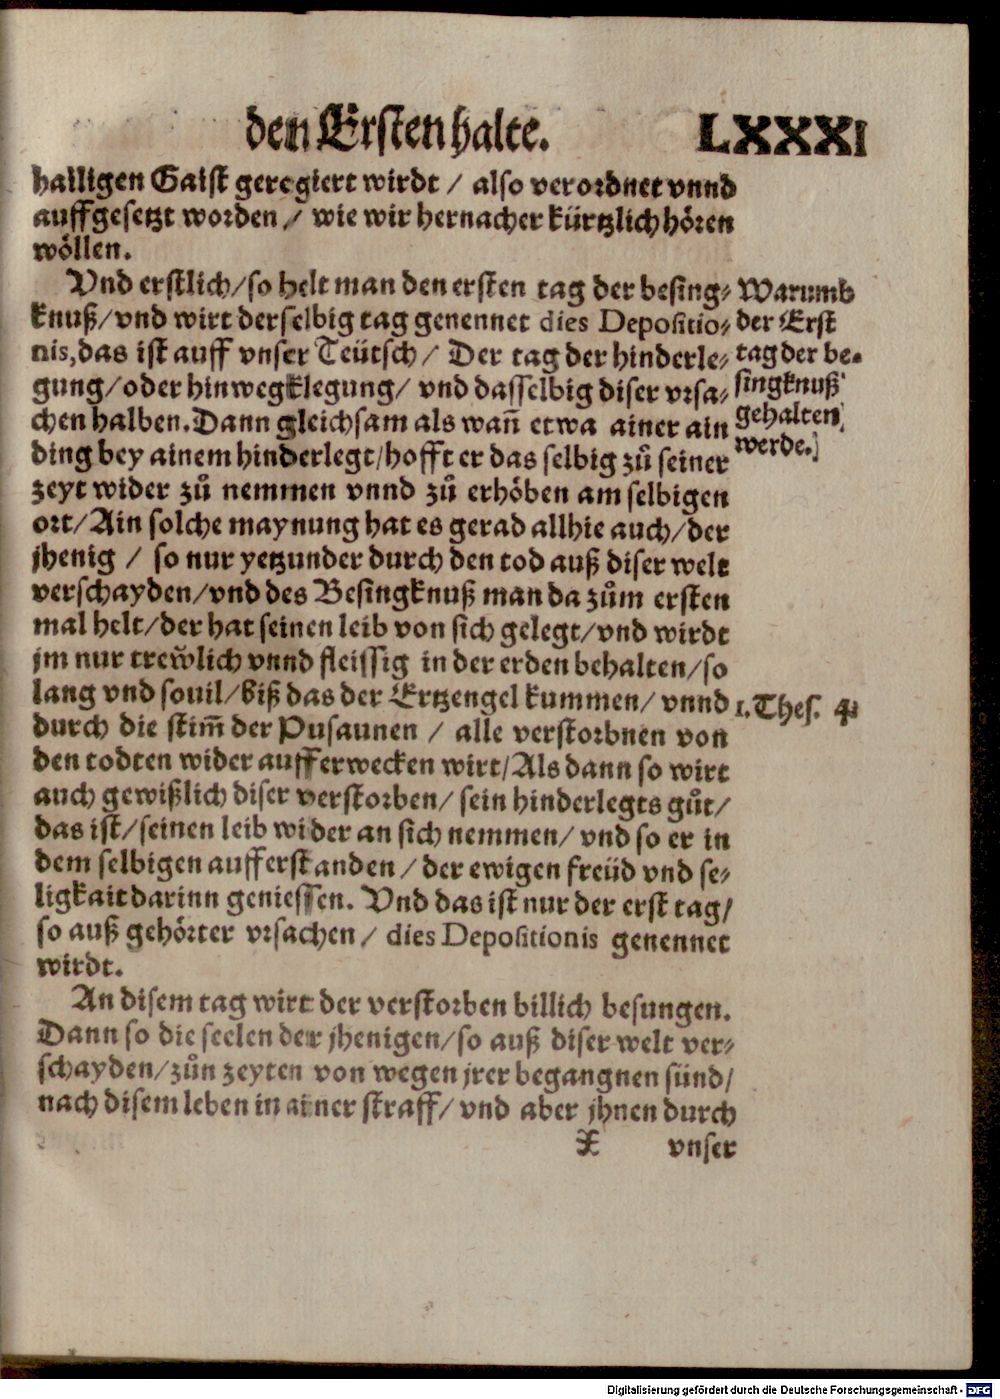 den Ersten halte. LXXXI
hailigen Gaist geregiert wirdt / also verordnet vnnd
auffgesetzt worden / wie wir hernacher kürtzlich hören
wöllen.
Vnd erstlich/so helt man den ersten tag der besing-
knuß/vnd wirt derselbig tag genennet dies Depositio-
nis,das ist auff vnser Teütsch/ Der tag der hinderle-
gung/oder hinwegklegung/ vnd dasselbig diser vrsa-
chen halben.Dann gleichsam als wañ etwa ainer ain
ding bey ainem hinderlegt/hofft er das selbig zů seiner
zeyt wider zů nemmen vnnd zů erhöben am selbigen
ort/Ain solche maynung hat es gerad allhie auch/der
jhenig / so nur yetzunder durch den tod auß diser welt
verschayden/vnd des Besingknuß man da zům ersten
mal helt/der hat seinen leib von sich gelegt/vnd wirdt
jm nur trew̃lich vnnd fleissig in der erden behalten/so
lang vnd souil/biß das der Ertzengel kummen/ vnnd
durch die stim̃ der Pusaunen / alle verstorbnen von
den todten wider aufferwecken wirt/Als dann so wirt
auch gewißlich diser verstorben/ sein hinderlegts gůt/
das ist/seinen leib wider an sich nemmen/ vnd so er in
dem selbigen aufferstanden / der ewigen freüd vnd se-
ligkait darinn geniesssen. Vnd das ist nur der erst tag/
so auß gehörter vrsachen / dies Depositionis genennet
wirdt.
An disem tag wirt der verstorben billich besungen.
Dann so die seelen der jhenigen/so auß diser welt ver-
schayden/zůn zeyten von wegen jrer begangnen sünd/
nach disem leben in ainer straff/ vnd aber jhnen durch
X vnser
Warumb
der Erst
tag der be-
singknuß
gehalten
werde.
1.Thes. 4
Digitalisierung gefördert durch die Deutsche Forschungsgemeinschaft - DFG